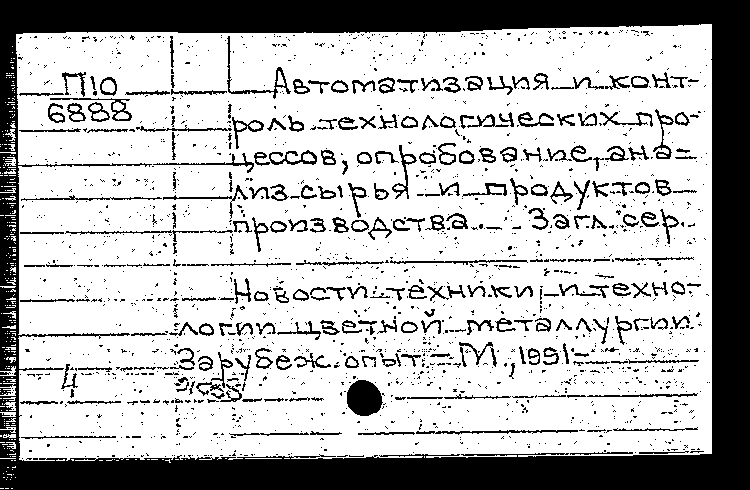 П10 Автоматизация и конт-
6888
роль технологических про-
цессов, опробование, ана=
лиз сырья и продуктов
производства. Загл. сер.
Новости техники и техно-
логии цветной металлургии
Зарубеж. опыт - М., 1991-
4